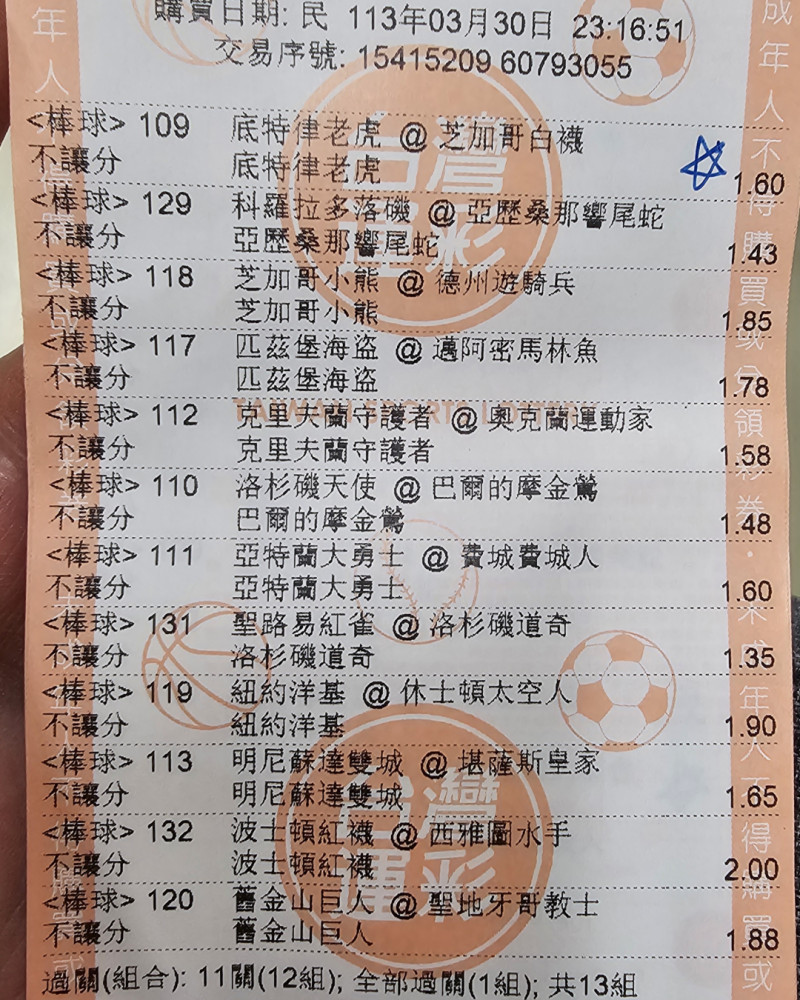 購買日期: 民 113年03月30日 23:16:51
交易序號: 15415209 60793055
<棒球> 109 底特律老虎 @ 芝加哥白襪
不讓分 底特律老虎 1.60
<棒球> 129 科羅拉多落磯 @ 亞歷桑那響尾蛇
不讓分 亞歷桑那響尾蛇 1.43
<棒球> 118 芝加哥小熊 @ 德州遊騎兵
不讓分 芝加哥小熊 1.85
<棒球> 117 匹茲堡海盜 @ 邁阿密馬林魚
不讓分 匹茲堡海盜 1.78
<棒球> 112 克里夫蘭守護者 @ 奧克蘭運動家
不讓分 克里夫蘭守護者 1.58
<棒球> 110 洛杉磯天使 @ 巴爾的摩金鶯
不讓分 巴爾的摩金鶯 1.48
<棒球> 111 亞特蘭大勇士 @ 費城費城人
不讓分 亞特蘭大勇士 1.60
<棒球> 131 聖路易紅雀 @ 洛杉磯道奇
不讓分 洛杉磯道奇 1.35
<棒球> 119 紐約洋基 @ 休士頓太空人
不讓分 紐約洋基 1.90
<棒球> 113 明尼蘇達雙城 @ 堪薩斯皇家
不讓分 明尼蘇達雙城 1.65
<棒球> 132 波士頓紅襪 @ 西雅圖水手
不讓分 波士頓紅襪 2.00
<棒球> 120 舊金山巨人 @ 聖地牙哥教士
不讓分 舊金山巨人 1.88
過關(組合): 11關(12組); 全部過關(1組); 共13組
台灣運彩
台灣運彩